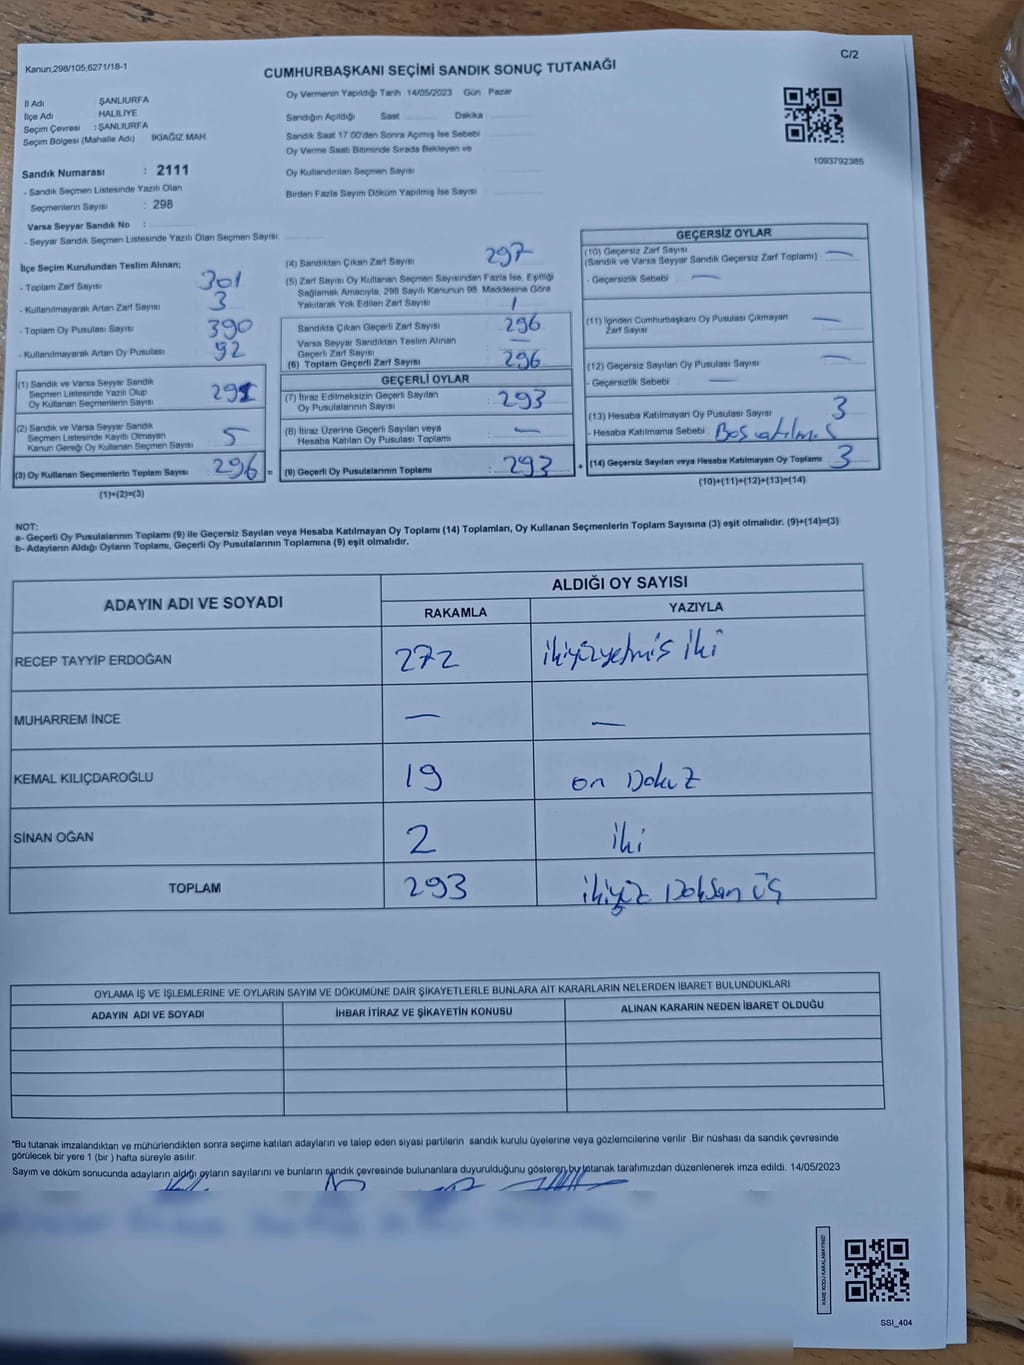 Kanun;298/105,6271/18-1
C/2
CUMHURBAŞKANI SEÇİMİ SANDIK SONUÇ TUTANAĞI
İl Adı ŞANLIURFA
İlçe Adı HALİLİYE
Seçim Çevresi : ŞANLIURFA
Seçim Bölgesi (Mahalle Adı) İKİAĞIZ MAH
Sandık Numarası : 2111
- Sandık Seçmen Listesinde Yazılı Olan
Seçmenlerin Sayısı : 298
Varsa Seyyar Sandık No :
- Seyyar Sandık Seçmen Listesinde Yazılı Olan Seçmen Sayısı
Oy Vermenin Yapıldığı Tarih 14/05/2023 Gün Pazar
Sandığın Açıldığı Saat Dakika
Sandık Saat 17:00'den Sonra Açımış İse Sebebi
Oy Verme Saati Bitiminde Sırada Bekleyen ve
Oy Kullandırılan Seçmen Sayısı
Birden Fazla Sayım Döküm Yapılmış İse Sayısı
1093792385
İlçe Seçim Kurulundan Teslim Alınan;
- Toplam Zarf Sayısı 301
- Kullanılmayarak Artan Zarf Sayısı 3
- Toplam Oy Pusulası Sayısı 390
- Kullanılmayarak Artan Oy Pusulası 92
(1) Sandık ve Varsa Seyyar Sandık
Seçmen Listesinde Yazılı Olup
Oy Kullanan Seçmenlerin Sayısı 291
(2) Sandık ve Varsa Seyyar Sandık
Seçmen Listesinde Kayıtlı Olmayan
Kanun Gereği Oy Kullanan Seçmen Sayısı 5
(3) Oy Kullanan Seçmenlerin Toplam Sayısı 296 =
(1)+(2)=(3)
(4) Sandıktan Çıkan Zarf Sayısı 297
(5) Zarf Sayısı Oy Kullanan Seçmen Sayısından Fazla İse, Eşitliği
Sağlamak Amacıyla, 298 Sayılı Kanunun 98. Maddesine Göre
Yakılarak Yok Edilen Zarf Sayısı 1
Sandıkta Çıkan Geçerli Zarf Sayısı 296
Varsa Seyyar Sandıktan Teslim Alınan
Geçerli Zarf Sayısı —
(6) Toplam Geçerli Zarf Sayısı 296
GEÇERLİ OYLAR
(7) İtiraz Edilmeksizin Geçerli Sayılan
Oy Pusulalarının Sayısı : 293
(8) İtiraz Üzerine Geçerli Sayılan veya
Hesaba Katılan Oy Pusulası Toplamı : —
(9) Geçerli Oy Pusulalarının Toplamı : 293 +
GEÇERSİZ OYLAR
(10) Geçersiz Zarf Sayısı
(Sandık ve Varsa Seyyar Sandık Geçersiz Zarf Toplamı) —
- Geçersizlik Sebebi —
(11) İçinden Cumhurbaşkanı Oy Pusulası Çıkmayan
Zarf Sayısı —
(12) Geçersiz Sayılan Oy Pusulası Sayısı —
- Geçersizlik Sebebi —
(13) Hesaba Katılmayan Oy Pusulası Sayısı 3
- Hesaba Katılmama Sebebi : Boş atılmış
(14) Geçersiz Sayılan veya Hesaba Katılmayan Oy Toplamı : 3
(10)+(11)+(12)+(13)=(14)
NOT:
a- Geçerli Oy Pusulalarının Toplamı (9) ile Geçersiz Sayılan veya Hesaba Katılmayan Oy Toplamı (14) Toplamları, Oy Kullanan Seçmenlerin Toplam Sayısına (3) eşit olmalıdır. (9)+(14)=(3)
b- Adayların Aldığı Oyların Toplamı, Geçerli Oy Pusulalarının Toplamına (9) eşit olmalıdır.
ADAYIN ADI VE SOYADI ALDIĞI OY SAYISI
RAKAMLA YAZIYLA
RECEP TAYYİP ERDOĞAN 272 ikiyüzyetmiş iki
MUHARREM İNCE — —
KEMAL KILIÇDAROĞLU 19 on Dokuz
SİNAN OĞAN 2 iki
TOPLAM 293 ikiyüz Doksan üç
OYLAMA İŞ VE İŞLEMLERİNE VE OYLARIN SAYIM VE DÖKÜMÜNE DAİR ŞİKAYETLERLE BUNLARA AİT KARARLARIN NELERDEN İBARET BULUNDUKLARI
ADAYIN ADI VE SOYADI İHBAR İTİRAZ VE ŞİKAYETİN KONUSU ALINAN KARARIN NEDEN İBARET OLDUĞU
"Bu tutanak imzalandıktan ve mühürlendikten sonra seçime katılan adayların ve talep eden siyasi partilerin sandık kurulu üyelerine veya gözlemcilerine verilir .Bir nüshası da sandık çevresinde
görülecek bir yere 1 (bir ) hafta süreyle asılır.
Sayım ve döküm sonucunda adayların aldığı oyların sayılarını ve bunların sandık çevresinde bulunanlara duyurulduğunu gösteren bu tutanak tarafımızdan düzenlenerek imza edildi. 14/05/2023
KARE KODU KARALAMAYINIZ!
SSI_404